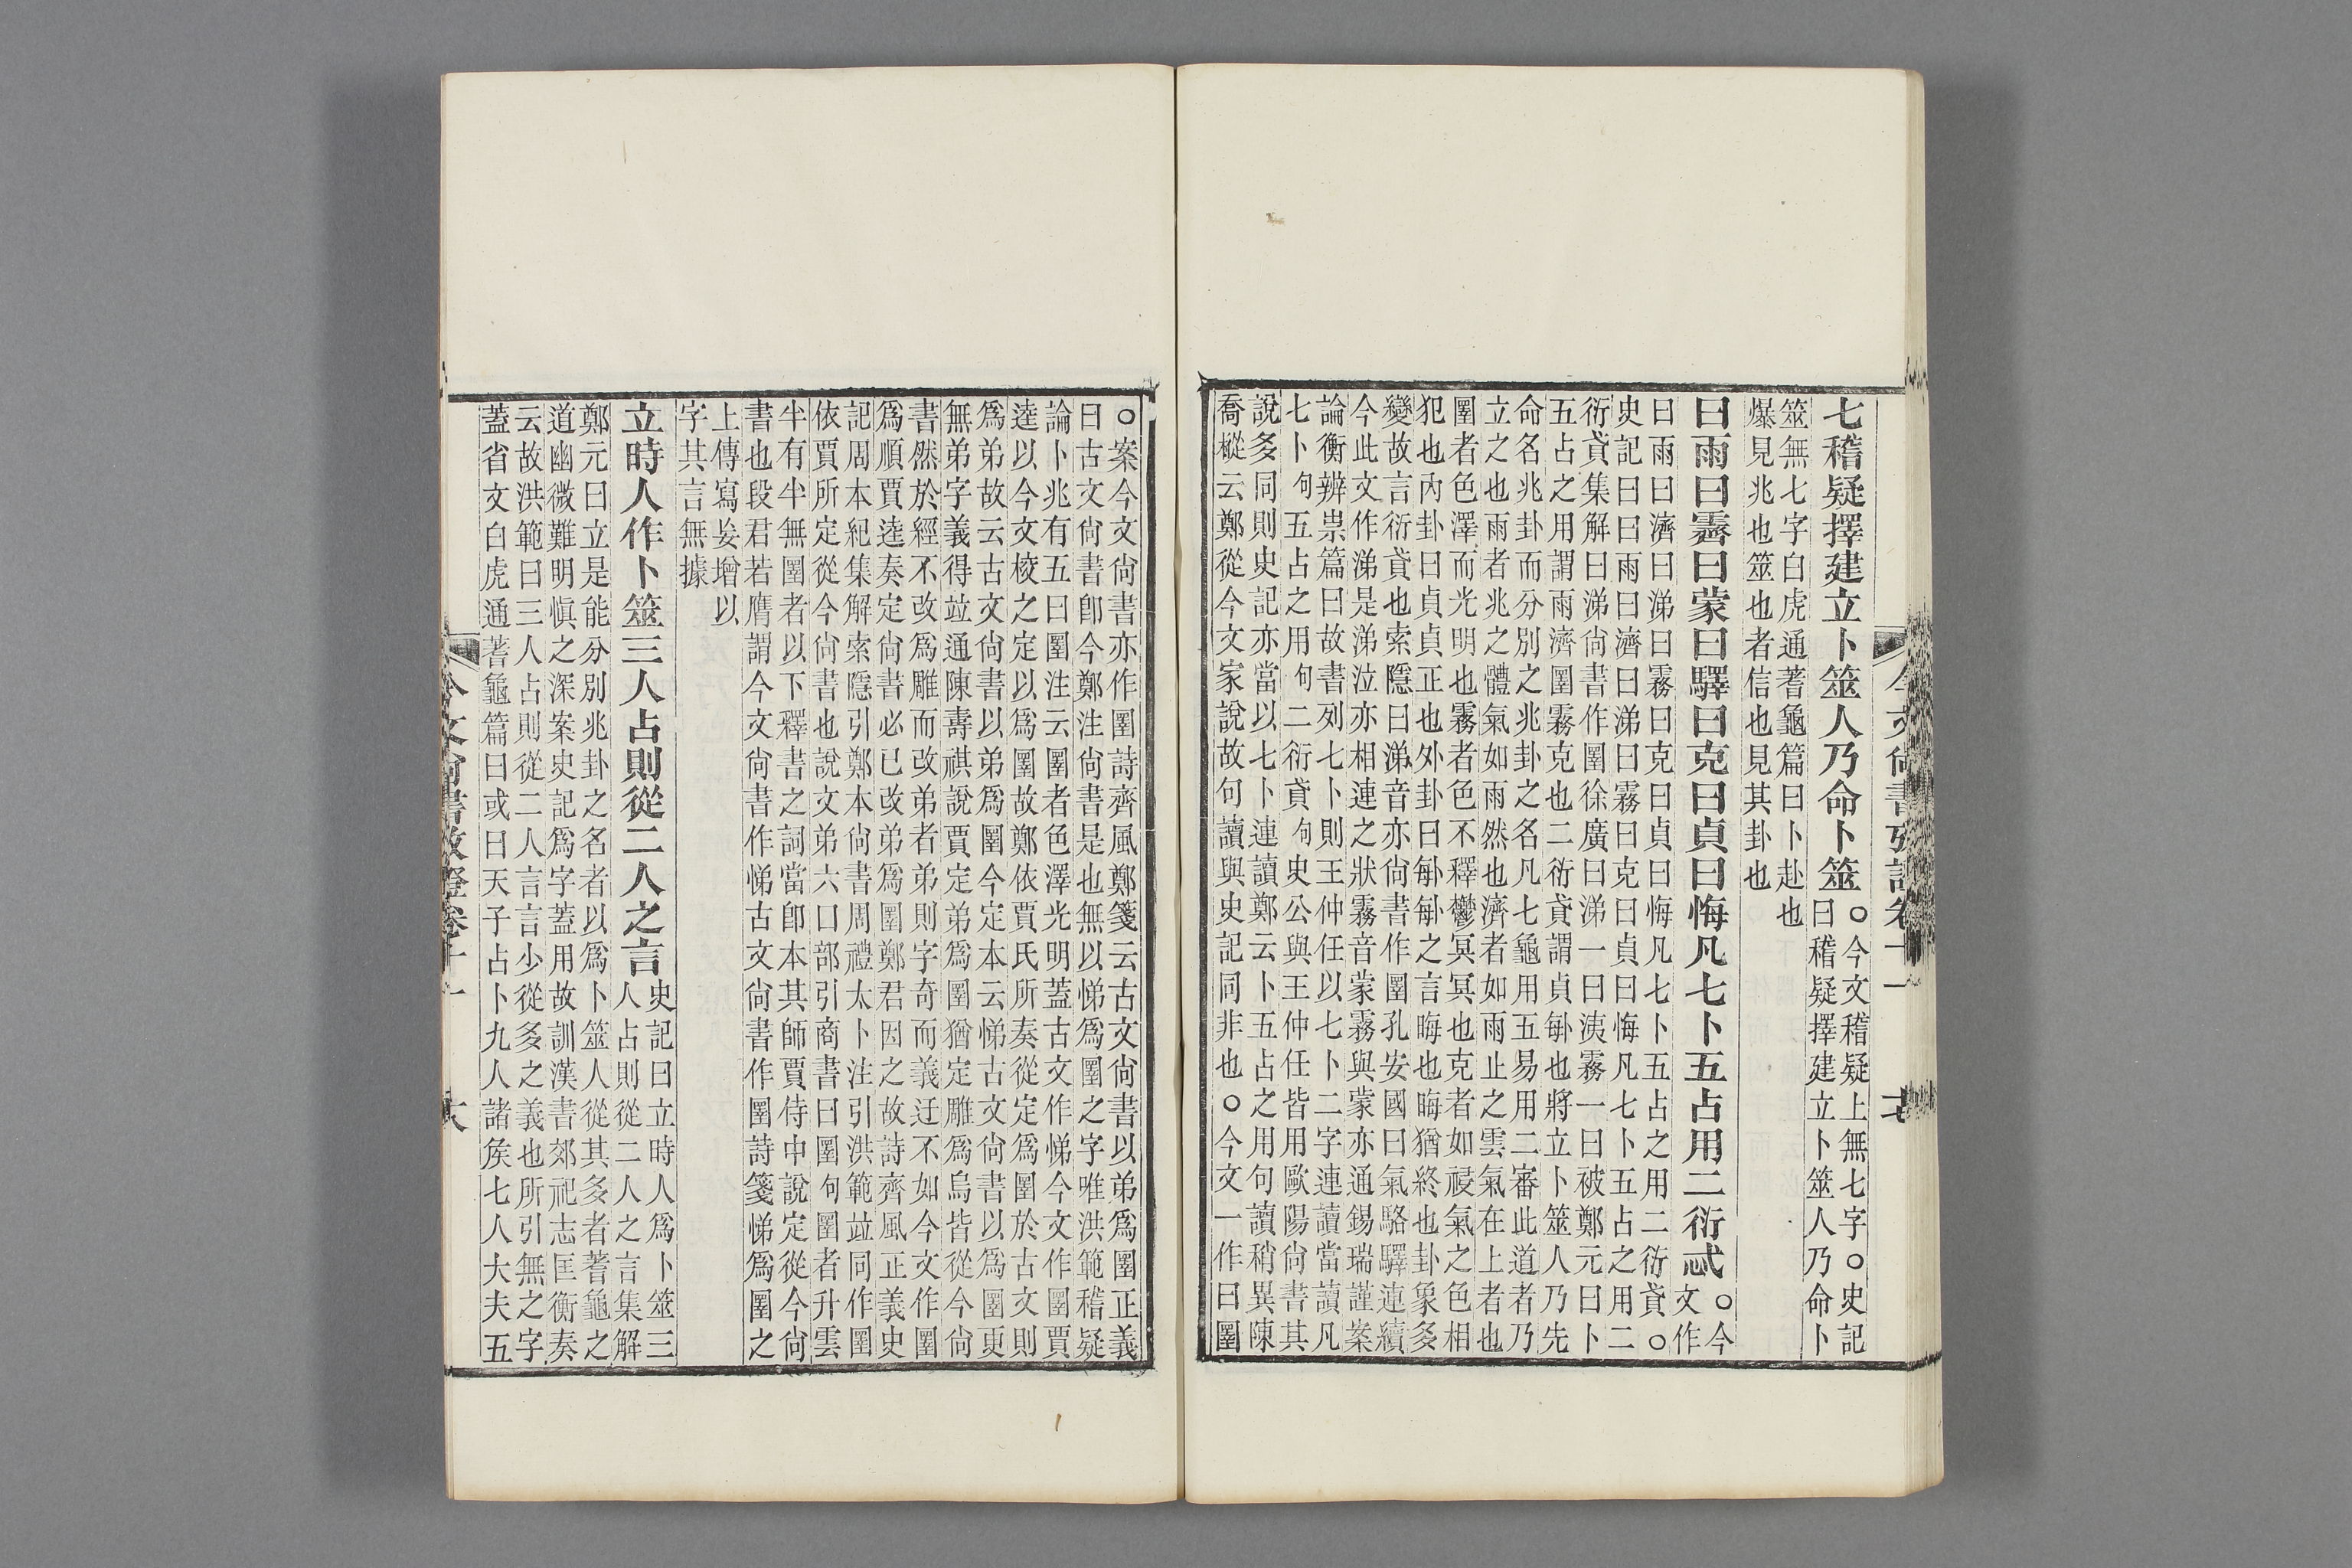 七稽疑擇建立卜筮人乃命卜筮
○今文稽疑上無七字○史記
曰稽疑擇建立卜筮人乃命卜
筮無七字白虎通蓍龜篇曰卜赴也
爆見兆也筮也者信也見其卦也
曰雨曰霽曰蒙曰驛曰克曰貞曰悔凡七卜五占用二衍忒
○今
文作
曰雨曰濟曰涕曰霧曰克曰貞曰悔凡七卜五占之用二衍貣○
史記曰曰雨曰濟曰涕曰霧曰克曰貞曰悔凡七卜五占之用二
衍貣集解曰涕尙書作圛徐廣曰涕一曰洟霧一曰被鄭元曰卜
五占之用謂雨濟圛霧克也二衍貣謂貞𠧩也將立卜筮人乃先
命名兆卦而分別之兆卦之名凡七龜用五易用二審此道者乃
立之也雨者兆之體氣如雨然也濟者如雨止之雲氣在上者也
圛者色澤而光明也霧者色不釋鬱冥冥也克者如祲氣之色相
犯也內卦曰貞貞正也外卦曰𠧩𠧩之言晦也晦猶終也卦象多
變故言衍貣也索隱曰涕音亦尙書作圛孔安國曰氣駱驛連續
今此文作涕是涕泣亦相連之狀霧音蒙霧與蒙亦通錫瑞謹案
論衡辨祟篇曰故書列七卜則王仲任以七卜二字連讀當讀凡
七卜句五占之用句二衍貣句史公與王仲任皆用歐陽尙書其
說多同則史記亦當以七卜連讀鄭云卜五占之用句讀稍異陳
喬樅云鄭從今文家說故句讀與史記同非也○今文一作曰圛
今文尙書攷證卷十一
十七
○案今文尙書亦作圛詩齊風鄭箋云古文尙書以弟爲圛正義
曰古文尙書卽今鄭注尙書是也無以悌爲圛之字唯洪範稽疑
論卜兆有五曰圛注云圛者色澤光明蓋古文作悌今文作圛賈
逵以今文校之定以爲圛故鄭依賈氏所奏從定爲圛於古文則
爲弟故云古文尙書以弟爲圛今定本云悌古文尙書以爲圛更
無弟字義得竝通陳壽祺說賈定弟爲圛猶定雕爲烏皆從今尙
書然於經不改爲雕而改弟者弟則字奇而義迂不如今文作圛
爲順賈逵奏定尙書必已改弟爲圛鄭君因之故詩齊風正義史
記周本紀集解索隱引鄭本尙書周禮太卜注引洪範竝同作圛
依賈所定從今尙書也說文弟六口部引商書曰圛句圛者升雲
半有半無圛者以下釋書之詞當卽本其師賈侍中說定從今尙
書也段君若膺謂今文尙書作悌古文尙書作圛詩箋悌爲圛之
上傳寫妄增以
字其言無據
立時人作卜筮三人占則從二人之言
史記曰立時人爲卜筮三
人占則從二人之言集解
鄭元曰立是能分別兆卦之名者以爲卜筮人從其多者蓍龜之
道幽微難明愼之深案史記爲字蓋用故訓漢書郊祀志匡衡奏
云故洪範曰三人占則從二人言言少從多之義也所引無之字
蓋省文白虎通蓍龜篇曰或曰天子占卜九人諸矦七人大夫五
今文尙書攷證卷十一